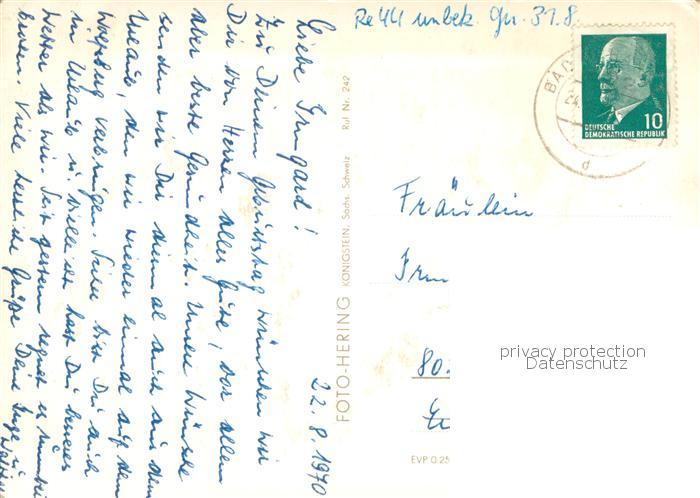 Re 44 unbek. Gu. 31.8.
22.8.1970
Liebe Irmgard!
Zu Deinem Geburtstag wünschen wir
Dir von Herzen alles Gute, vor allem
aber beste Gesundheit. Unsere Wünsche
senden wir Dir diesmal auch aus dem
Urlaub, den wir wieder einmal auf dem
verbringen. Sicher bist Du auch
im Urlaub u. vielleicht hast Du besseres
Wetter als wir. Seit gestern regnet es
Viele herzliche Grüße Deine Inge u.
FOTO-HERING KÖNIGSTEIN, Sächs. Schweiz Ruf Nr. 242
BAD
10
DEUTSCHE
DEMOKRATISCHE REPUBLIK
d
Fräulein
Irm
80
EVP 0.25
privacy protection
Datenschutz